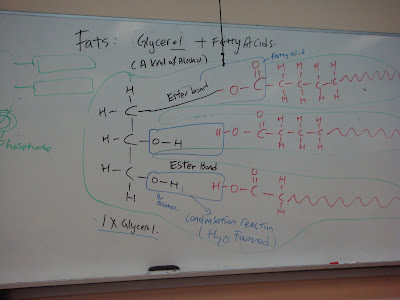 Fats: Glycerol + Fatty Acids.
(A kind of Alcohol)
Fatty acid
H O H H H H
Ester bond
H - C O - C - C - C - C - C
H H H H
phosphate
O H H H H
H - C - O - H H - O - C - C - C - C - C
H H H H
Ester Bond
O H
H - C - O - H H - O - C - C - H
H H
Condensation reaction
(H2O Formed)
1 X Glycerol.